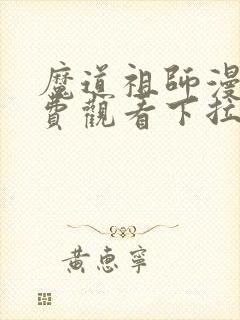 魔道祖師漫
費觀看下拉
黃惠寧